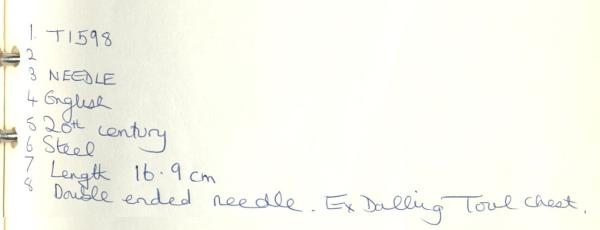 1. T1598
2
3 NEEDLE
4 English
5 20th century
6 Steel
7 Length 16.9 cm
8 Double ended needle. Ex Dalling Tool Chest.